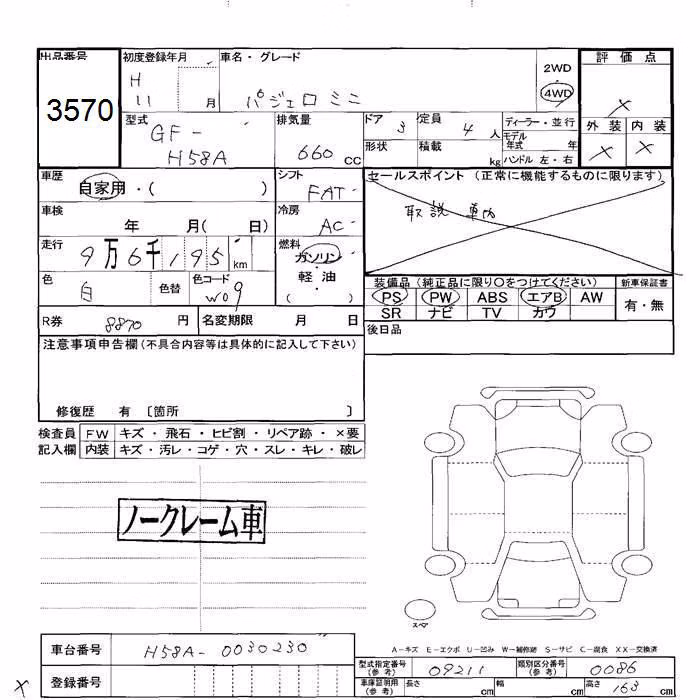 出品番号 初度登録年月 車名・グレード 評価点
3570 H 11 月 パジェロミニ 2WD 4WD ×
型式 排気量 ドア 定員 ディーラー・並行 外装 内装
GF- H58A 660 CC 3 4 人 モデル年式 年 × ×
形状 積載 kg ハンドル 左・右
車歴 シフト セールスポイント (正常に機能するものに限ります)
自家用・( ) FAT
車検 冷房 取説 車内
年 月( 日) AC
走行 燃料
9万6千195 km ガソリン
色 色替 色コード 軽・油 装備品 (純正品に限り○をつけてください) 新車保証書
白 W09 ( ) PS PW ABS エアB AW 有・無
SR ナビ TV カワ
R券 8870 円 名変期限 月 日 後日品
注意事項申告欄 (不具合内容等は具体的に記入して下さい)
修復歴 有 〔箇所 〕
検査員 FW キズ・飛石・ヒビ割・リペア跡・×要
記入欄 内装 キズ・汚レ・コゲ・穴・スレ・キレ・破レ
ノークレーム車
スペア
A-キズ E-エクボ U-凹み W-補修跡 S-サビ C-腐食 XX-交換済
車台番号 H58A-0030230
型式指定番号 (参考) 09211 類別区分番号 (参考) 0086
登録番号
車庫証明用 (参考) 長さ cm 幅 cm 高さ 163 cm
×